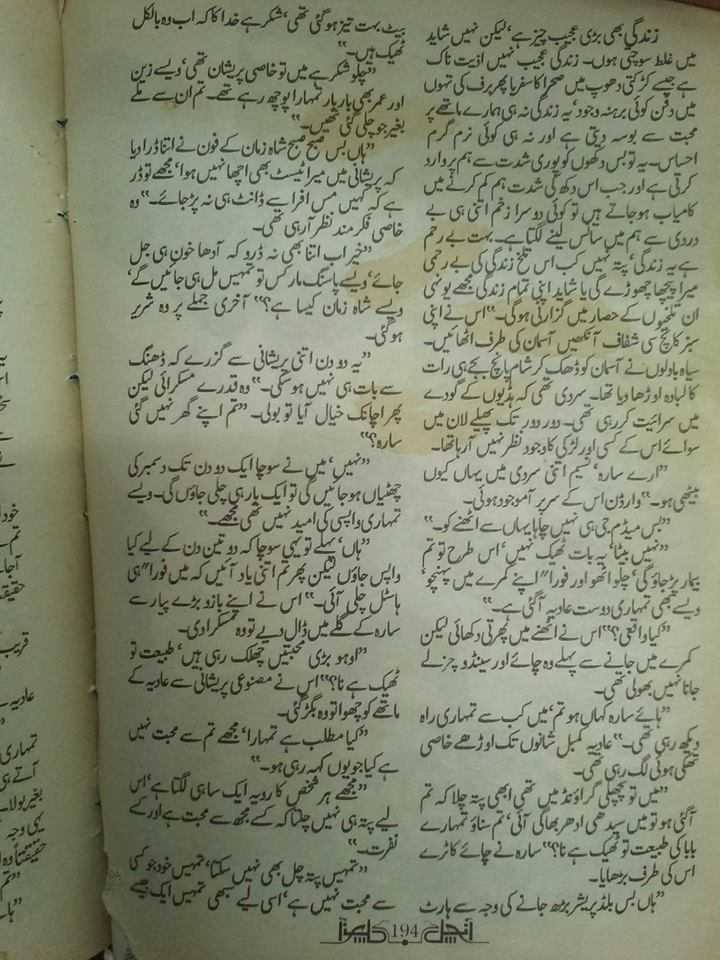 زندگی بھی بڑی عجیب چیز ہے، لیکن نہیں شاید
میں غلط سوچتی ہوں۔ زندگی عجیب نہیں اذیت ناک
ہے جیسے کڑکتی دھوپ میں صحرا کا سفر یا پھر برف کی تہوں
میں دفن کوئی برہنہ وجود، یہ زندگی نہ ہی ہمارے ماتھے پر
محبت سے بوسہ دیتی ہے اور نہ ہی کوئی نرم گرم
احساس۔ یہ تو بس دکھوں کو پوری شدت سے ہم پر وارد
کرتی ہے اور جب اس دکھ کی شدت ہم کم کرنے میں
کامیاب ہوجاتے ہیں تو کوئی دوسرا زخم اتنی ہی بے
دردی سے ہم میں سانس لینے لگتا ہے۔ بہت بے رحم
ہے یہ زندگی، پتہ نہیں کب اس تلخ زندگی کی بے رحمی
میرا پیچھا چھوڑے گی یا شاید اپنی تمام زندگی مجھے یونہی
ان تلخیوں کے حصار میں گزارنی ہوگی۔“ اس نے اپنی
سبز کانچ کسی شفاف آنکھیں آسمان کی طرف اٹھائیں۔
سیاہ بادلوں نے آسمان کو ڈھک کر شام پانچ بجے ہی رات
کا لبادہ اوڑھا دیا تھا۔ سردی تھی کہ ہڈیوں کے گودے
میں سرائیت کررہی تھی۔ دور دور تک پھیلے لان میں
سوائے اس کے کسی اور لڑکی کا وجود نظر نہیں آرہا تھا۔
”ارے سارہ، تم اتنی سردی میں یہاں کیوں
بیٹھی ہو۔“ وارڈن اس کے سر پر آموجود ہوئی۔
”بس میڈم جی ہی نہیں چاہا یہاں سے اٹھنے کو۔“
”نہیں بیٹا، یہ بات ٹھیک نہیں، اس طرح تو تم
بیمار پڑجاؤ گی، چلو اٹھو اور فوراً اپنے کمرے میں پہنچو،
ویسے بھی تمہاری دوست عادیہ آگئی ہے۔“
”کیا واقعی؟“ اس نے اٹھنے میں پھرتی دکھائی لیکن
کمرے میں جانے سے پہلے وہ چائے اور سینڈوچز لے
جانا نہیں بھولی تھی۔
”ہائے سارہ کہاں ہو تم، میں کب سے تمہاری راہ
دیکھ رہی تھی۔“ عادیہ کمبل شانوں تک اوڑھے خاصی
تھکی ہوئی لگ رہی تھی۔
”میں تو پچھلی گراؤنڈ میں تھی ابھی پتہ چلا کہ تم
آگئی ہو تو میں سیدھی ادھر بھاگی آئی، تم سناؤ تمہارے
بابا کی طبیعت تو ٹھیک ہے نا؟“ سارہ نے چائے کا ٹرے
اس کی طرف بڑھایا۔
”ہاں بس بلڈ پریشر بڑھ جانے کی وجہ سے ہارٹ
بیٹ بہت تیز ہوگئی تھی، شکر ہے خدا کا کہ اب وہ بالکل
ٹھیک ہیں۔“
”چلو شکر ہے میں تو خاصی پریشان تھی، ویسے زین
اور عمر بھی بار بار تمہارا پوچھ رہے تھے۔ تم ان سے ملے
بغیر جو چلی گئی تھیں۔“
”ہاں بس صبح صبح شاہ زمان کے فون نے اتنا ڈرا دیا
کہ پریشانی میں میرا ٹیسٹ بھی اچھا نہیں ہوا، مجھے تو ڈر
ہے کہ کہیں مس افرا سے ڈانٹ ہی نہ پڑجائے۔“ وہ
خاصی فکرمند نظر آرہی تھی۔
”خیر اب اتنا بھی نہ ڈرو کہ آدھا خون ہی جل
جائے، ویسے پاسنگ مارکس تو تمہیں مل ہی جائیں گے،
ویسے شاہ زمان کیسا ہے؟“ آخری جملے پر وہ شریر
ہوگئی۔
”یہ دو دن اتنی پریشانی سے گزرے کہ ڈھنگ
سے بات ہی نہیں ہوسکی۔“ وہ قدرے مسکرائی لیکن
پھر اچانک خیال آیا تو بولی۔ ”تم اپنے گھر نہیں گئی
سارہ؟“
”نہیں، میں نے سوچا ایک دو دن تک دسمبر کی
چھٹیاں ہوجائیں گی تو ایک بار ہی چلی جاؤں گی۔ ویسے
تمہاری واپسی کی امید نہیں تھی مجھے۔“
”ہاں، پہلے تو یہی سوچا کہ دو تین دن کے لیے کیا
واپس جاؤں لیکن پھر تم اتنی یاد آئیں کہ میں فوراً ہی
ہاسٹل چلی آئی۔“ اس نے اپنے بازو بڑے پیار سے
سارہ کے گلے میں ڈال دیے تو وہ مسکرا دی۔
”اوہو بڑی محبتیں چھلک رہی ہیں، طبیعت تو
ٹھیک ہے نا؟“ اس نے مصنوعی پریشانی سے عادیہ کے
ماتھے کو چھوا تو وہ بگڑ گئی۔
”کیا مطلب ہے تمہارا، مجھے تم سے محبت نہیں
ہے کیا جو یوں کہہ رہی ہو۔“
”مجھے ہر شخص کا رویہ ایک سا ہی لگتا ہے، اس
لیے پتہ ہی نہیں چلتا کہ کسے مجھ سے محبت ہے اور کسے
نفرت۔“
”تمہیں پتہ چل بھی نہیں سکتا، تمہیں خود جو کسی
سے محبت نہیں ہے، اسی لیے سبھی تمہیں ایک جیسے
آنچل 194